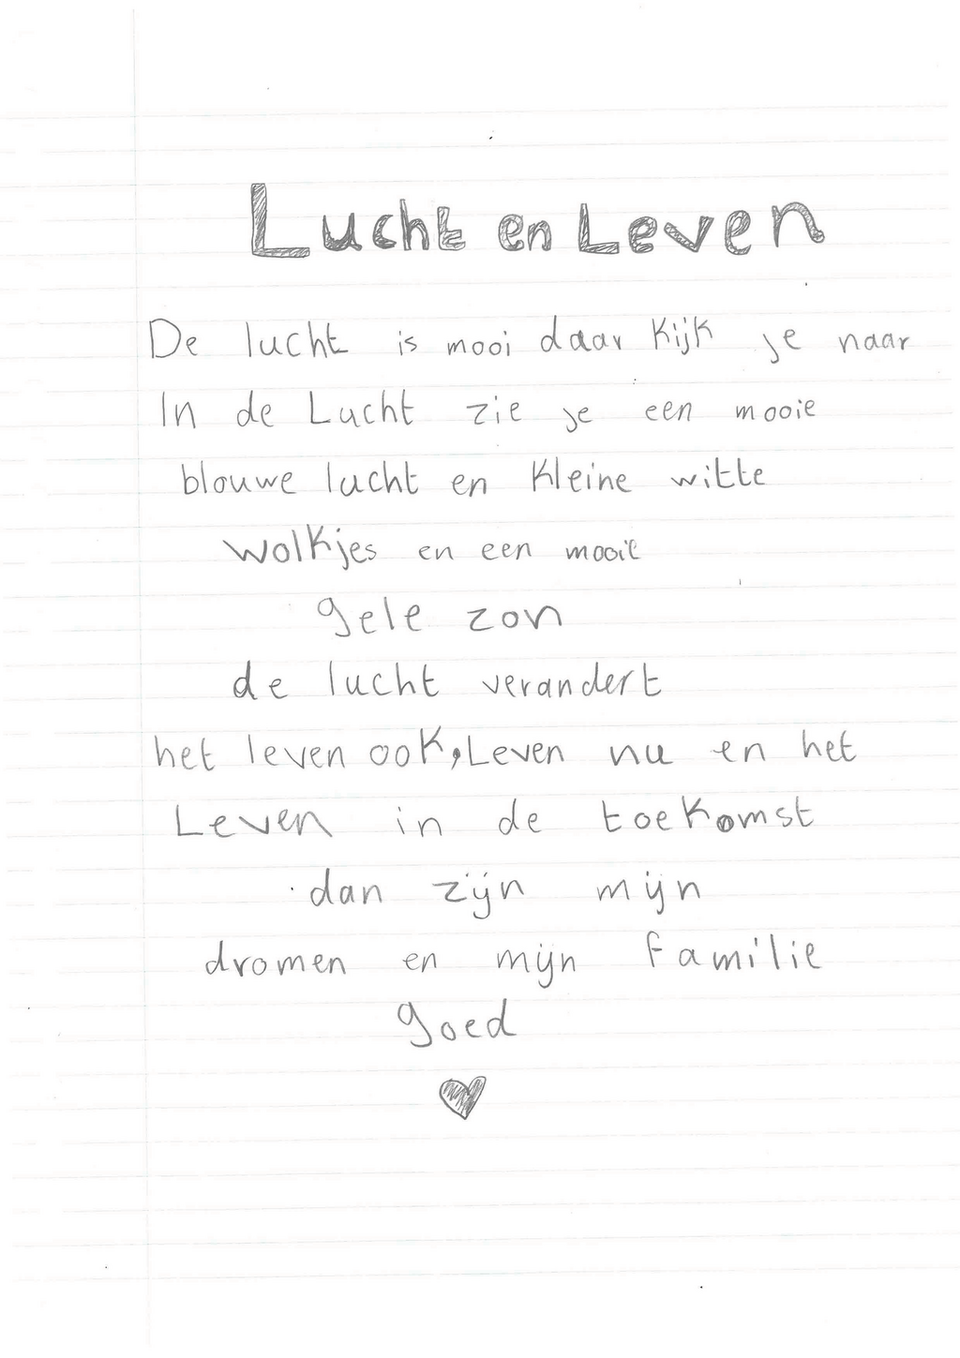 Lucht en Leven
De lucht is mooi daar kijk je naar
In de Lucht zie je een mooie
blouwe lucht en kleine witte
wolkjes en een mooie
gele zon
de lucht verandert
het leven ook, Leven nu en het
Leven in de toekomst
dan zijn mijn
dromen en mijn familie
goed